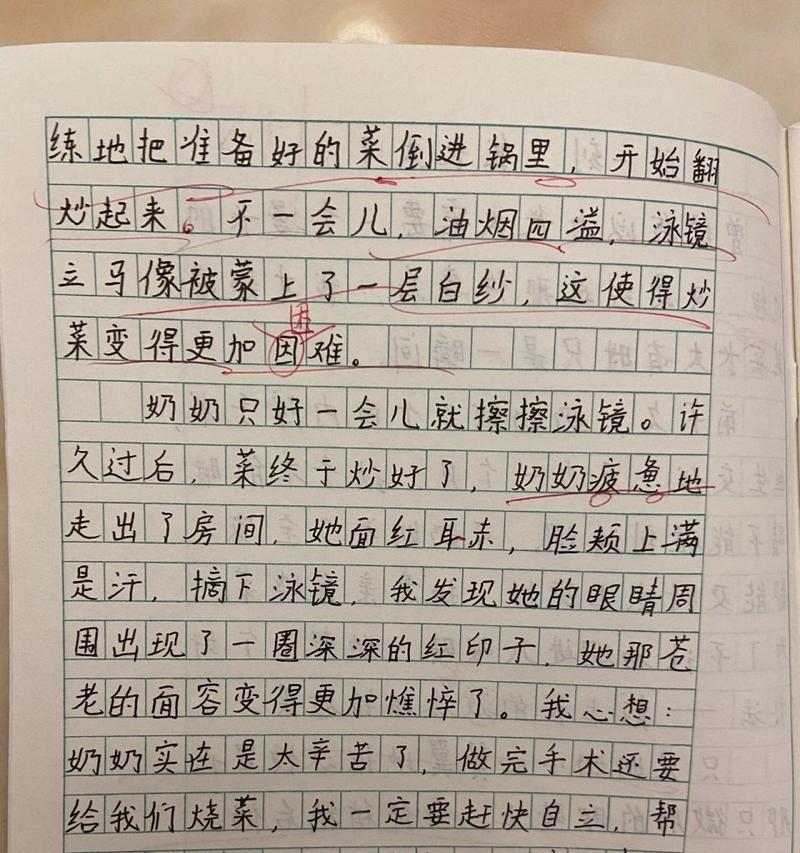 练地把准备好的菜倒进锅里，开始翻
炒起来。不一会儿，油烟四溢，泳镜
立马像被蒙上了一层白纱，这使得炒
困
菜变得更加因难。
奶奶只好一会儿就擦擦泳镜。许
久过后，菜终于炒好了，奶奶疲惫地
走出了房间，她面红耳赤，脸颊上满
是汗，摘下泳镜，我发现她的眼睛周
围出现了一圈深深的红印子，她那苍
老的面容变得更加憔悴了。我心想：
奶奶实在是太辛苦了，做完手术还要
给我们烧菜，我一定要赶快自立，帮